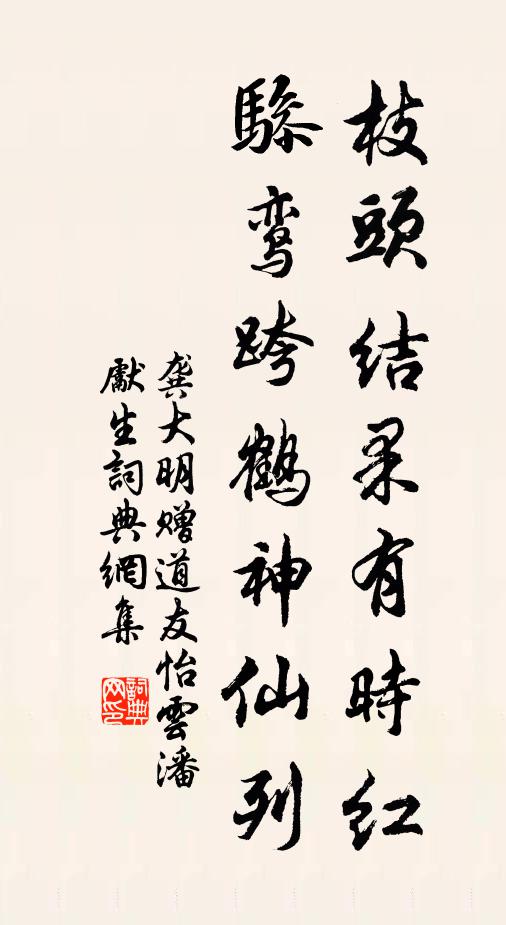 枝頭結果有時紅
驂鸾跨鶴神仙列
龚大明赠道友怡雲潘
獻生詞典網集
詞典
网印